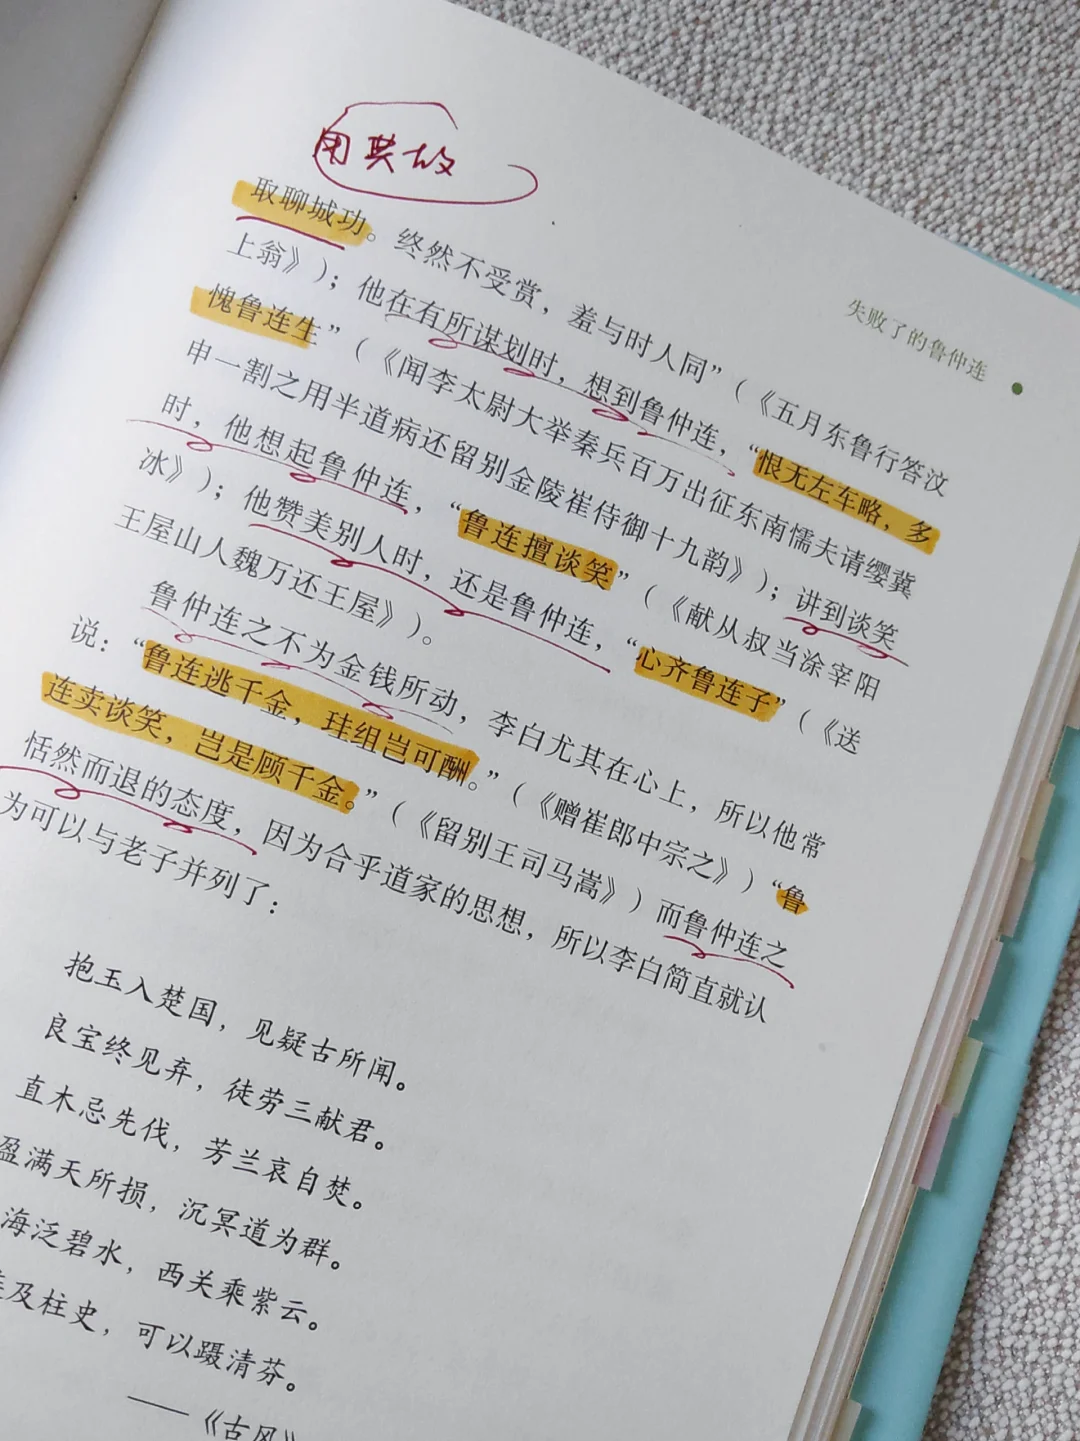 用典故
失败了的鲁仲连
取聊城功。终然不受赏，羞与时人同”（《五月东鲁行答汶
上翁》）；他在有所谋划时，想到鲁仲连，“恨无左车略，多
愧鲁连生”（《闻李太尉大举秦兵百万出征东南懦夫请缨冀
申一割之用半道病还留别金陵崔侍御十九韵》）；讲到谈笑
时，他想起鲁仲连，“鲁连擅谈笑”（《献从叔当涂宰阳
冰》）；他赞美别人时，还是鲁仲连，“心齐鲁连子”（《送
王屋山人魏万还王屋》）。
鲁仲连之不为金钱所动，李白尤其在心上，所以他常
说：“鲁连逃千金，珪组岂可酬。”（《赠崔郎中宗之》）“鲁
连卖谈笑，岂是顾千金。”（《留别王司马嵩》）而鲁仲连之
恬然而退的态度，因为合乎道家的思想，所以李白简直就认
为可以与老子并列了：
抱玉入楚国，见疑古所闻。
良宝终见弃，徒劳三献君。
直木忌先伐，芳兰哀自焚。
盈满天所损，沉冥道为群。
海泛碧水，西关乘紫云。
及柱史，可以蹑清芬。
——《古风》